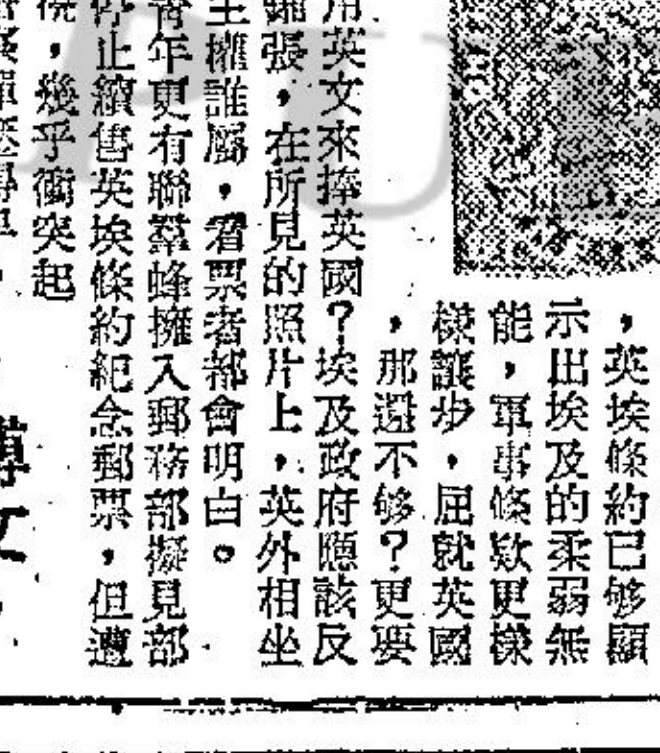 ，英埃條約已够顯
示出埃及的柔弱無
能，軍事條欵更樣
樣讓步，屈就英國
，那還不够？更要
用英文來捧英國？埃及政府應該反
張，在所見的照片上，英外相坐
主權誰屬，看票者都會明白。
青年更有聯羣蜂擁入郵務部擬見部
停止續售英埃條約紀念郵票，但遭
，幾乎衝突起